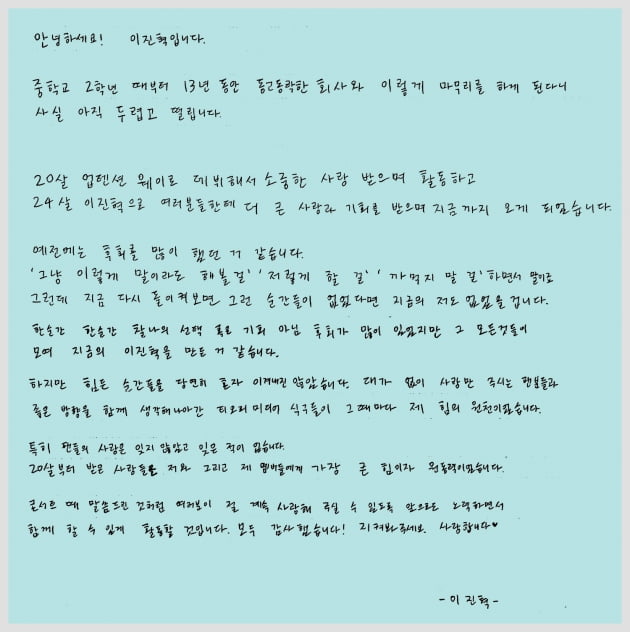 안녕하세요! 이진혁입니다.
중학교 2학년 때부터 13년 동안 동고동락한 회사와 이렇게 마무리를 하게 된다니
사실 아직 두렵고 떨립니다.
20살 업텐션 웨이로 데뷔해서 소중한 사랑 받으며 활동하고
24살 이진혁으로 여러분들한테 더 큰 사랑과 기회를 받으며 지금까지 오게 되었습니다.
예전에는 후회를 많이 했던 거 같습니다.
'그냥 이렇게 말이라도 해볼걸' '저렇게 할 걸' '까먹지 말 걸' 하면서 말이죠
그런데 지금 다시 돌이켜보면 그런 순간들이 없었다면 지금의 저도 없었을 겁니다.
한순간 한순간 찰나의 선택 혹은 기회 아님 후회가 많이 있었지만 그 모든것들이
모여 지금의 이진혁을 만든 거 같습니다.
하지만 힘든 순간들을 당연히 혼자 이겨내진 않았습니다. 대가 없이 사랑만 주시는 팬분들과
좋은 방향을 함께 생각해나아간 티오피미디어 식구들이 그때마다 제 힘의 원천이었습니다.
특히 팬들의 사랑은 잊지 않았고 잊은 적이 없습니다.
20살부터 받은 사랑들로 저와 그리고 제 멤버들에게 가장 큰 힘이자 원동력이었습니다.
콘서트 때 말씀드린 것처럼 여러분이 절 계속 사랑해 주실 수 있도록 앞으로도 노력하면서
함께 할 수 있게 활동할 것입니다. 모두 감사했습니다! 지켜봐주세요. 사랑합니다♥
- 이진혁 -